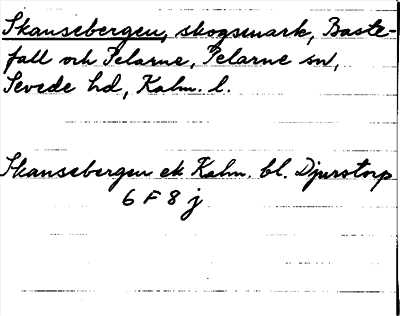 Skansebergen, skogsmark, Baste-
fall och Pelarne, Pelarne sn,
Sevede hd, Kalm. l.
Skansebergen ek Kalm. bl. Djurstorp
6 F 8 j